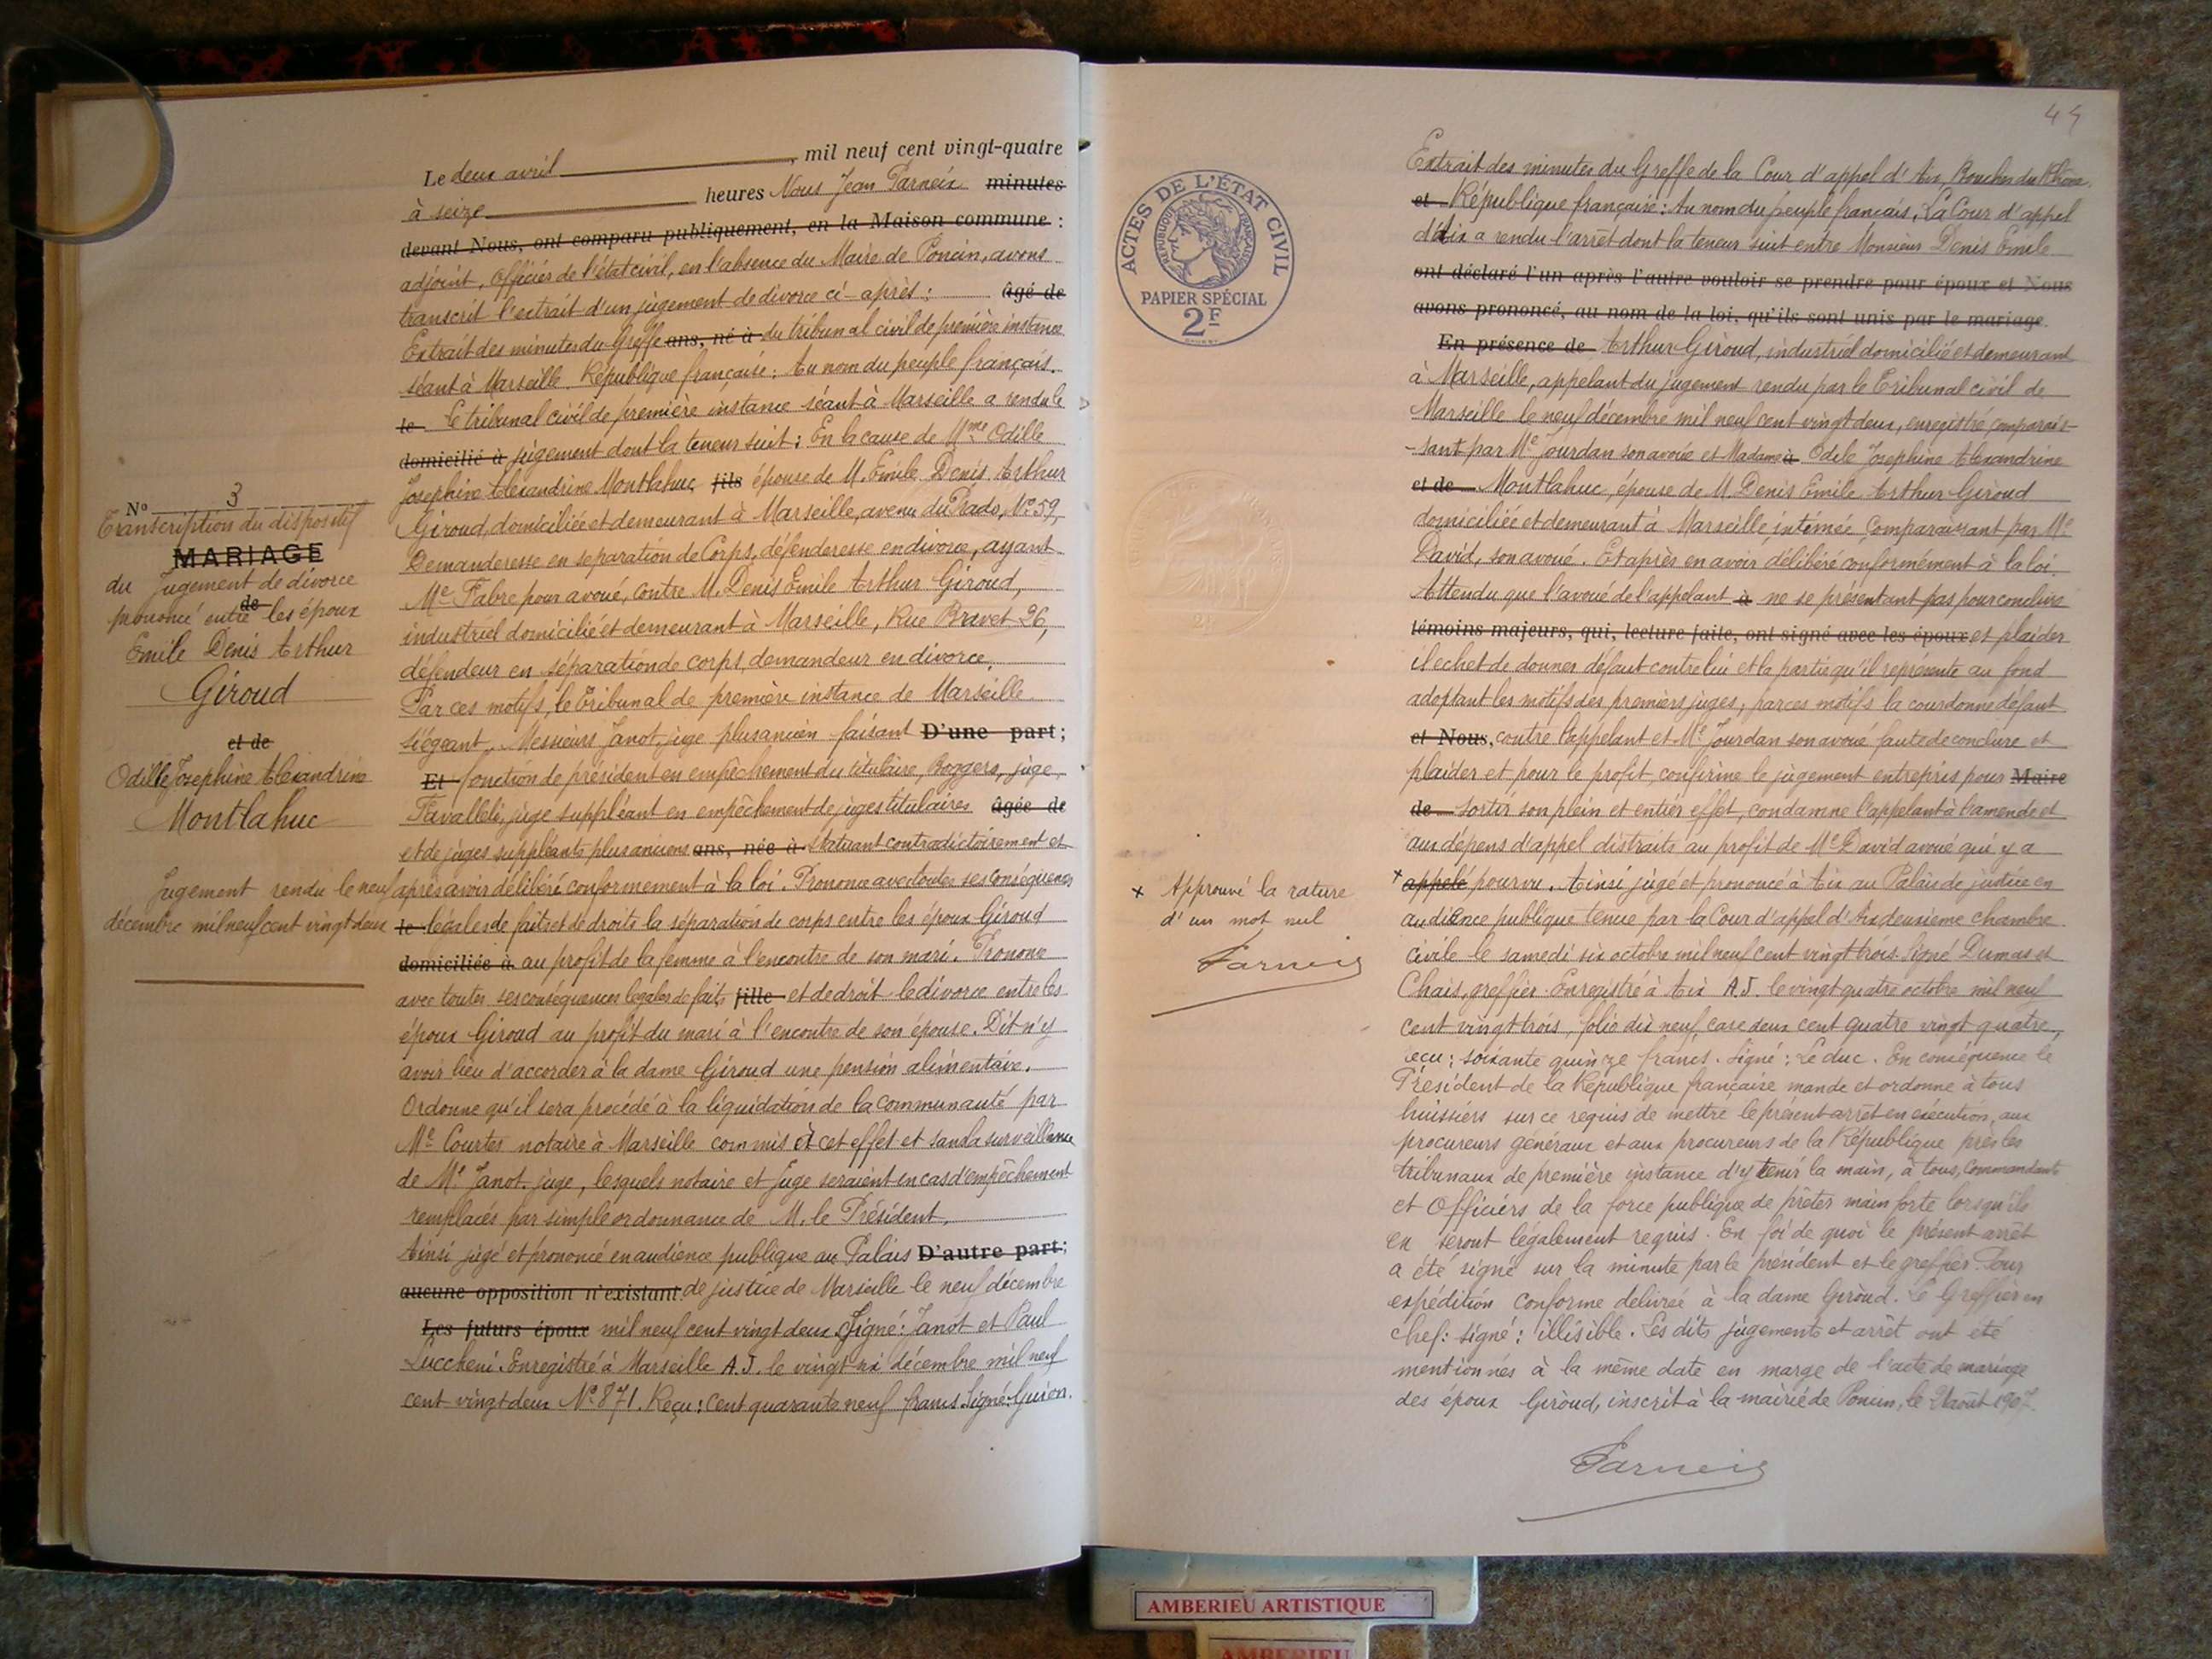 N° 3
Transcription du dispositif
MARIAGE
du jugement de divorce
de
prononcé entre les époux
Emile Denis Arthur
Giroud
et de
Odille Josephine Alexandrine
Montlahuc
Jugement rendu le neuf
décembre mil neuf cent vingt deux
Le deux avril, mil neuf cent vingt-quatre
à seize heures Nous Jean Parneix minutes
devant Nous, ont comparu publiquement, en la Maison commune :
adjoint, Officier de l'état civil, en l'absence du Maire de Poncin, avons
transcrit l'extrait d'un jugement de divorce ci-après : âgé de
Extrait des minutes du Greffe ans, né à du tribunal civil de première instance
séant à Marseille. République française : Au nom du peuple français.
le Le tribunal civil de première instance séant à Marseille a rendu le
domicilié à jugement dont la teneur suit : En la cause de Mme Odille
Josephine Alexandrine Montlahuc fils épouse de M. Emile Denis Arthur
Giroud, domiciliée et demeurant à Marseille, avenue du Prado, N° 59,
Demanderesse en separation de Corps, défenderesse en divorce, ayant
Me Fabre pour avoué, contre M. Denis Emile Arthur Giroud,
industriel domicilié et demeurant à Marseille, Rue Bravet 26,
défendeur en séparation de corps, demandeur en divorce.
Par ces motifs, le Tribunal de première instance de Marseille
siégeant Messieurs Janot, juge plus ancien faisant D'une part ;
Et fonction de président en empêchement du titulaire, Boggers, juge,
Favalleli, juge suppléant en empêchement de juges titulaires âgée de
et de juges suppléants plus anciens ans, née à statuant contradictoirement et
après avoir délibéré conformement à la loi. Prononce avec toutes ses conséquences
le légales de faits et de droits la séparation de corps entre les époux Giroud
domiciliée à au profit de la femme à l'encontre de son mari. Prononce
avec toutes ses conséquences legales de faits fille et de droit le divorce entre les
époux Giroud au profit du mari à l'encontre de son épouse. Dit n'y
avoir lieu d'accorder à la dame Giroud une pension alimentaire.
Ordonne qu'il sera procédé à la liquidation de la communauté par
Me Courtes notaire à Marseille commis à cet effet et sous la surveillance
de Mr Janot juge, lesquels notaire et juge seraient en cas d'empêchement
remplacés par simple ordonnance de M. le Président.
Ainsi jugé et prononcé en audience publique au Palais D'autre part ;
aucune opposition n'existant de justice de Marseille le neuf décembre
Les futurs époux mil neuf cent vingt deux Signé : Janot et Paul
Luccheni. Enregistré à Marseille A.J. le vingt six décembre mil neuf
cent vingt deux N° 871. Reçu : cent quarante neuf francs. Signé : Guien.
44
ACTES DE L'ÉTAT CIVIL
RÉPUBLIQUE FRANÇAISE
PAPIER SPÉCIAL
2F
Extrait des minutes du Greffe de la Cour d'appel d'Aix, Bouches du Rhône,
et République française : Au nom du peuple francais, La Cour d'appel
d'Aix a rendu l'arrêt dont la teneur suit entre Monsieur Denis Emile
ont déclaré l'un après l'autre vouloir se prendre pour époux et Nous
avons prononcé, au nom de la loi, qu'ils sont unis par le mariage.
En présence de Arthur Giroud, industriel domicilié et demeurant
à Marseille, appelant du jugement rendu par le Tribunal civil de
Marseille le neuf décembre mil neuf cent vingt deux, enregistré comparais-
-sant par Me Jourdan son avoué et Madame à Odile Josephine Alexandrine
et de Montlahuc, épouse de M. Denis Emile Arthur Giroud
domiciliée et demeurant à Marseille intimée Comparaissant par Me
David, son avoué. Et après en avoir délibéré conformément à la loi.
Attendu que l'avoué de l'appelant à ne se présentant pas pour conclure
témoins majeurs, qui, lecture faite, ont signé avec les époux et plaider
il echet de donner défaut contre lui et la partie qu'il represente au fond
adoptant les motifs des premiers juges, par ces motifs la cour donne défaut
et Nous, contre l'appelant et Me Jourdan son avoué faute de conclure et
plaider et pour le profit, confirme le jugement entrepris pour Maire
de sortir son plein et entier effet, condamne l'appelant à l'amende et
aux dépens d'appel distraits au profit de Me David avoué qui y a
x appelé pourvu. Ainsi jugé et prononcé à Aix au Palais de justice en
audience publique tenue par la Cour d'appel d'Aix deuxieme chambre
civile le samedi six octobre mil neuf cent vingt trois. Signé Dumas et
Chais, greffier. Enregistré à Aix A.J. le vingt quatre octobre mil neuf
cent vingt trois, folio dix neuf, case deux cent quatre vingt quatre,
reçu : soixante quinze francs. Signé : Leduc. En conséquence le
Président de la République française mande et ordonne à tous
huissiers sur ce requis de mettre le présent arrêt en exécution, aux
procureurs généraux et aux procureurs de la République près les
tribunaux de première instance d'y tenir la main, à tous, Commandants
et Officiers de la force publique de prêter main forte lorsqu'ils
en seront légalement requis. En foi de quoi le présent arrêt
a été signé sur la minute par le président et le greffier. Pour
expédition conforme delivrée à la dame Giroud. Le Greffier en
chef : signé : illisible. Les dits jugements et arrêt ont été
mentionnés à la même date en marge de l'acte de mariage
des époux Giroud, inscrit à la mairie de Poncin, le août
Parneix
x Approuvé la rature
d'un mot nul
Parneix
AMBERIEU ARTISTIQUE
AMBERIEU